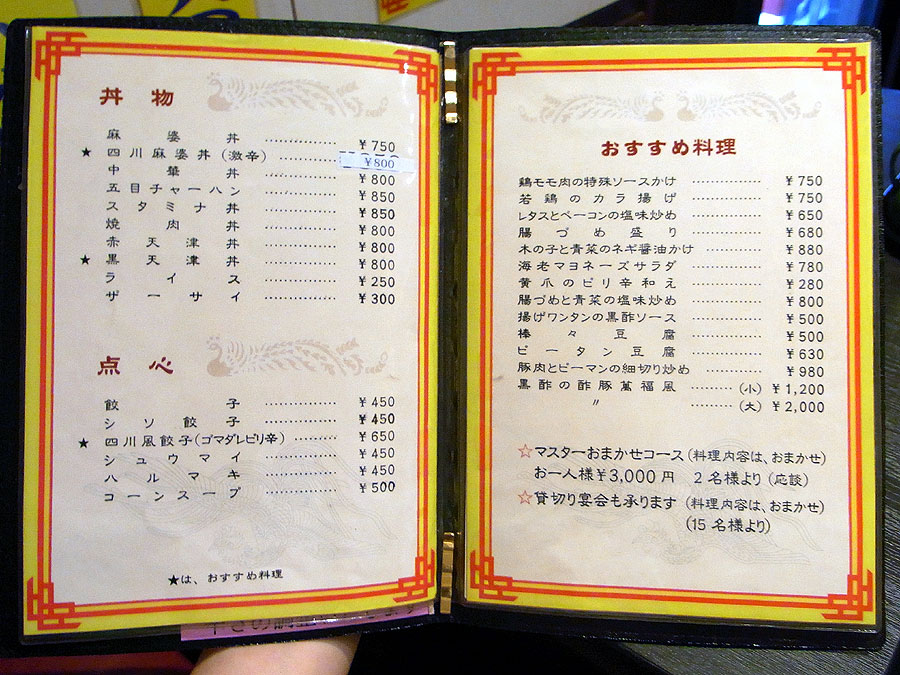 丼物
麻婆丼 ………… ¥750
★ 四川麻婆丼(激辛) ………… ¥800
中華丼 ………… ¥800
五目チャーハン ………… ¥850
スタミナ丼 ………… ¥850
焼肉丼 ………… ¥800
赤天津丼 ………… ¥800
★ 黒天津丼 ………… ¥800
ライス ………… ¥250
ザーサイ ………… ¥300
点心
餃子 ………… ¥450
シソ餃子 ………… ¥450
★ 四川風餃子(ゴマダレピリ辛) ………… ¥650
シュウマイ ………… ¥450
ハルマキ ………… ¥450
コーンスープ ………… ¥500
★は、おすすめ料理
おすすめ料理
鶏モモ肉の特殊ソースかけ ………… ¥750
若鶏のカラ揚げ ………… ¥750
レタスとベーコンの塩味炒め ………… ¥650
腸づめ盛り ………… ¥680
木の子と青菜のネギ醤油かけ ………… ¥880
海老マヨネーズサラダ ………… ¥780
黄爪のピリ辛和え ………… ¥280
腸づめと青菜の塩味炒め ………… ¥800
揚げワンタンの黒酢ソース ………… ¥500
棒々豆腐 ………… ¥500
ピータン豆腐 ………… ¥630
豚肉とピーマンの細切り炒め ………… ¥980
黒酢の酢豚萬福風 ………(小) ¥1,200
〃 ………(大) ¥2,000
☆マスターおまかせコース(料理内容は、おまかせ)
お一人様¥3,000円 2名様より(応談)
☆貸切り宴会も承ります(料理内容は、おまかせ)
(15名様より)